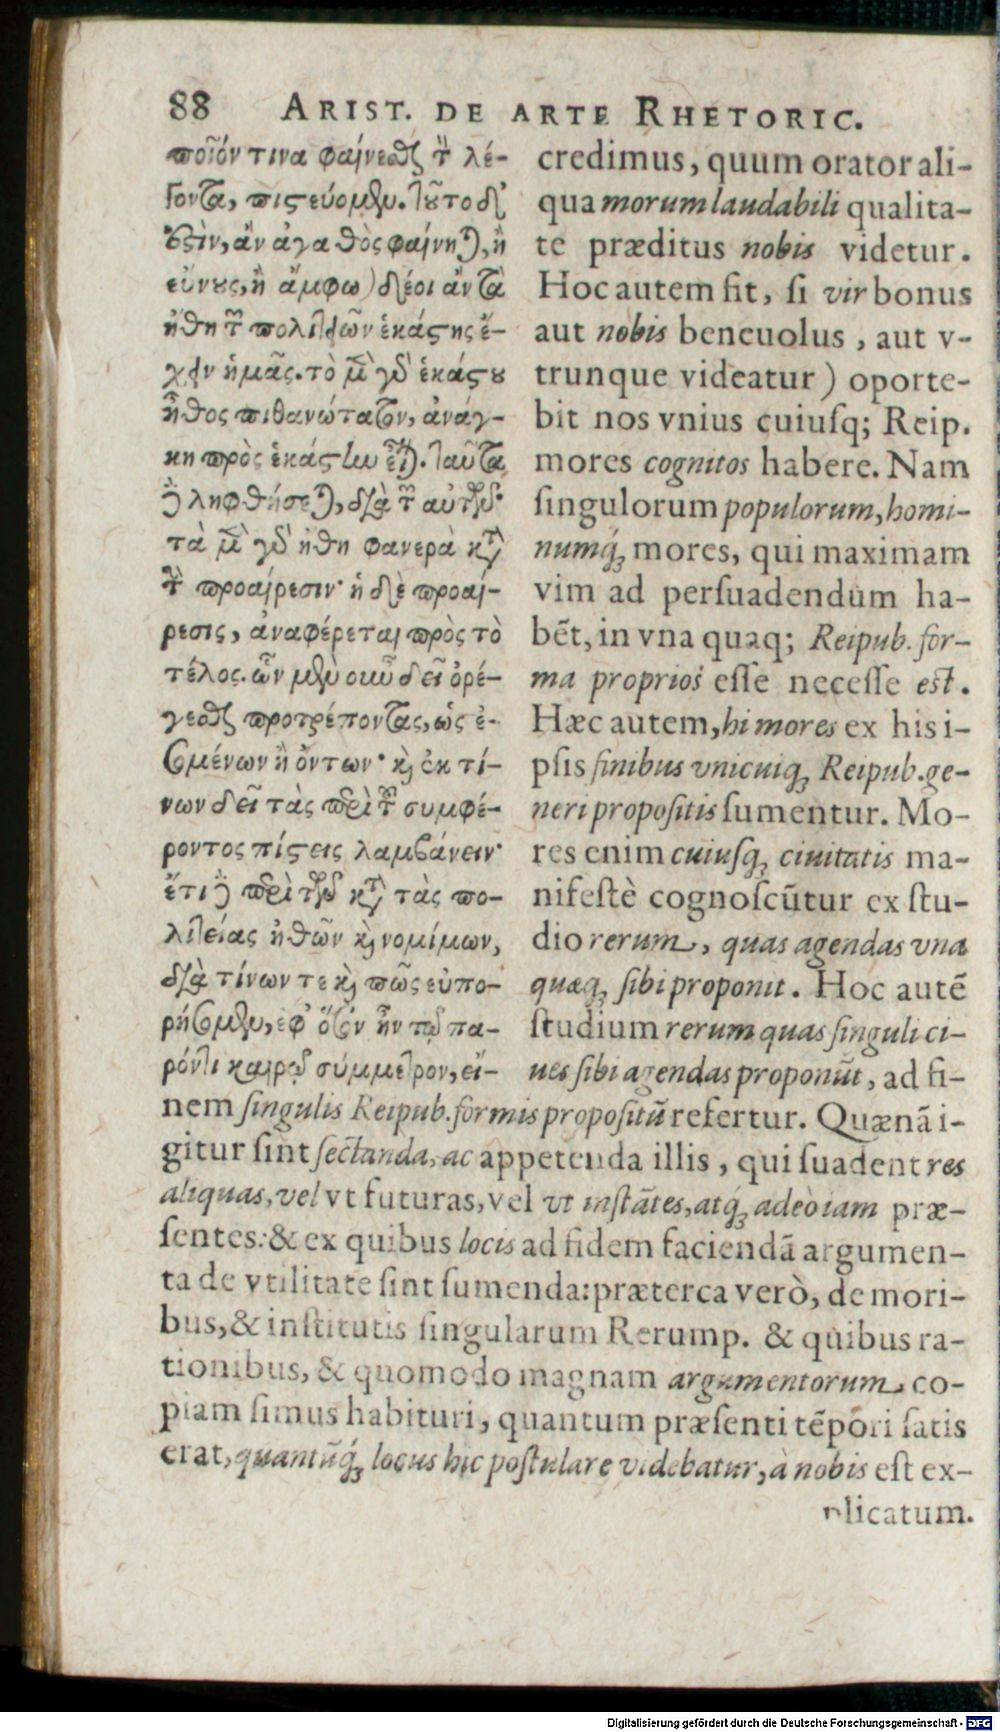 88 ARIST. DE ARTE RHETORIC.
ποῖόν τινα φαίνεσθαι τὸν λέ-
γοντα, πιστεύομεν. τοῦτο δ᾽
ἐστὶν, ἂν ἀγαθὸς φαίνηται, ἢ
εὔνους, ἢ ἄμφω) δέοι ἂν τὰ
ἤθη τῶν πολιτειῶν ἑκάστης ἔ-
χειν ἡμᾶς. τὸ μὲν γὰρ ἑκάστου
ἦθος πιθανώτατον, ἀνάγ-
κη πρὸς ἑκάστην εἶναι. ταῦτα
δὲ ληφθήσεται, διὰ τῶν αὐτῶν·
τὰ μὲν γὰρ ἤθη φανερὰ κατὰ
τὴν προαίρεσιν· ἡ δὲ προαί-
ρεσις, ἀναφέρεται πρὸς τὸ
τέλος. ὧν μὲν οὖν δεῖ ὀρέ-
γεσθαι προτρέποντας, ὡς ἐ-
σομένων ἢ ὄντων· καὶ ἐκ τί-
νων δεῖ τὰς περὶ τοῦ συμφέ-
ροντος πίστεις λαμβάνειν·
ἔτι δὲ περὶ τῶν κατὰ τὰς πο-
λιτείας ἠθῶν καὶ νομίμων,
διὰ τίνων τε καὶ πῶς εὐπο-
ρήσομεν, ἐφ᾽ ὅσον ἦν τῷ πα-
ρόντι καιρῷ σύμμετρον, εἴ-
credimus, quum orator ali-
qua morum laudabili qualita-
te præditus nobis videtur.
Hoc autem fit, si vir bonus
aut nobis beneuolus, aut v-
trunque videatur) oporte-
bit nos vnius cuiusq; Reip.
mores cognitos habere. Nam
singulorum populorum, homi-
numq́; mores, qui maximam
vim ad persuadendum ha-
bẽt, in vna quaq; Reipub. for-
ma proprios esse necesse est.
Hæc autem, hi mores ex his i-
psis finibus vnicuiq; Reipub. ge-
neri propositis sumentur. Mo-
res enim cuiusq; ciuitatis ma-
nifestè cognoscũtur ex stu-
dio rerum, quas agendas vna
quæq; sibi proponit. Hoc autẽ
studium rerum quas singuli ci-
ues sibi agendas proponũt, ad fi-
nem singulis Reipub. formis propositũ refertur. Quænã i-
gitur sint sectanda, ac appetenda illis, qui suadent res
aliquas, vel vt futuras, vel vt instãtes, atq́; adeò iam præ-
sentes: & ex quibus locis ad fidem faciendã argumen-
ta de vtilitate sint sumenda: præterea verò, de mori-
bus, & institutis singularum Rerump. & quibus ra-
tionibus, & quomodo magnam argumentorum co-
piam simus habituri, quantum præsenti tẽpori satis
erat, quantũq́; locus hic postulare videbatur, à nobis est ex-
plicatum.
Digitalisierung gefördert durch die Deutsche Forschungsgemeinschaft - DFG